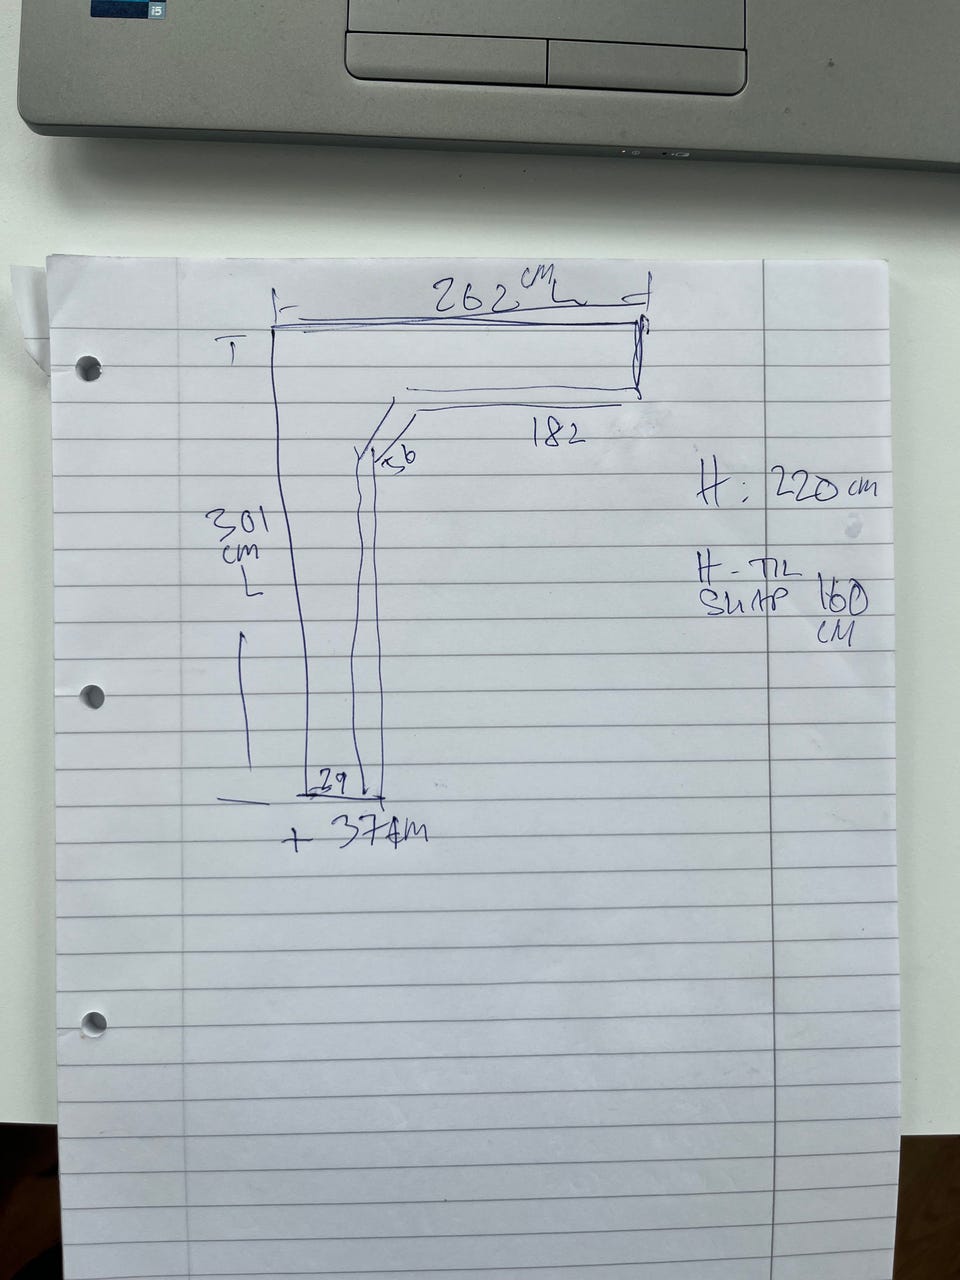 i5
262 CM L
T
182
56
H: 220 cm
301
CM
L
H - TIL
SKAP 160
CM
29
+ 37 CM